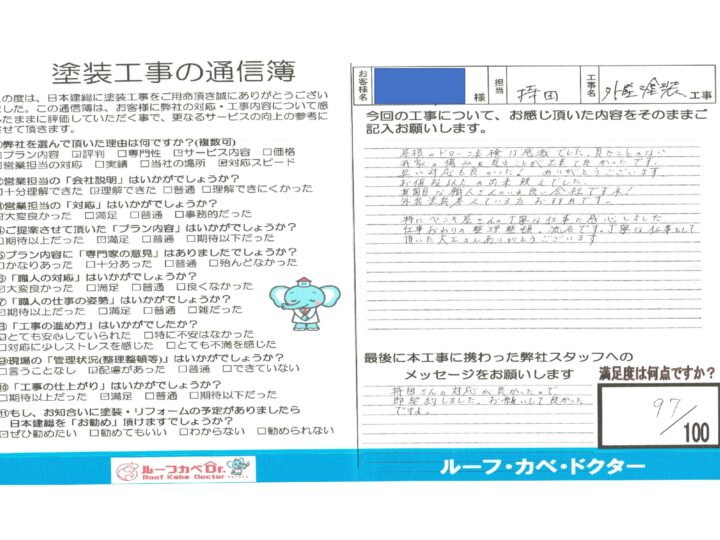 塗装工事の通信簿
の度は、日本建総に塗装工事をご用命頂き誠にありがとうござい
ました。この通信簿は、お客様に弊社の対応・工事内容について感
たままに評価していただく事で、更なるサービスの向上の参考に
させて頂きます。
弊社を選んで頂いた理由は何ですか?(複数可)
プラン内容 ☑評判 □専門性 ☑サービス内容 □価格
営業担当の対応 □実績 □当社の場所 ☑対応スピード
営業担当の「会社説明」はいかがでしょうか?
□十分理解できた ☑理解できた □普通 □理解できにくかった
営業担当の「対応」はいかがでしょうか?
☑大変良かった □満足 □普通 □事務的だった
ご提案させて頂いた「プラン内容」はいかがでしょうか?
□期待以上だった ☑満足 □普通 □期待以下だった
プラン内容に「専門家の意見」はありましたでしょうか?
□かなりあった □十分あった □普通 □殆んどなかった
⑥「職人の対応」はいかがでしょうか?
☑大変良かった □満足 □普通 □良くなかった
⑦「職人の仕事の姿勢」はいかがでしょうか?
☑期待以上だった □満足 □普通 □雑だった
⑧「工事の進め方」はいかがでしたか?
□とても安心していられた □特に不安はなかった
□対応に少しストレスを感じた □とても不満を感じた
⑨現場の「管理状況(整理整頓等)」はいかがでしょうか?
□言うことなし ☑配慮があった □普通 □できていない
⑩「工事の仕上がり」はいかがでしょうか?
□期待以上だった ☑満足 □普通 □期待以下だった
⑪もし、お知合いに塗装・リフォームの予定がありましたら
日本建総を「お勧め」頂けますでしょうか?
☑ぜひ勧めたい □勧めてもいい □わからない □勧められない
ルーフカベDr.
Roof Kabe Doctor
お客様名 様 担当 持田 工事名 外壁塗装 工事
今回の工事について、お感じ頂いた内容をそのままご
記入お願いします。
屋根のドローン点検は感激でした。見たことのない
我家の傷みを見ることが出来て良かったです。
早い対応も良かった! ありがとうございます
お値段以上の出来映えでした。
真面目な職人さんのいる良い会社ですネ!
外装塗装考えている方おすすめです。
特にペンキ屋さんの丁寧な仕事に感心しました
仕事おわりの整理整頓、流石です。丁寧な仕事をして
頂いた大工さんありがとうございます
最後に本工事に携わった弊社スタッフへの
メッセージをお願いします
持田さんの対応が良かったので
即契約しました。お願いして良かった
ですよ。
満足度は何点ですか?
97/100
ルーフ・カベ・ドクター